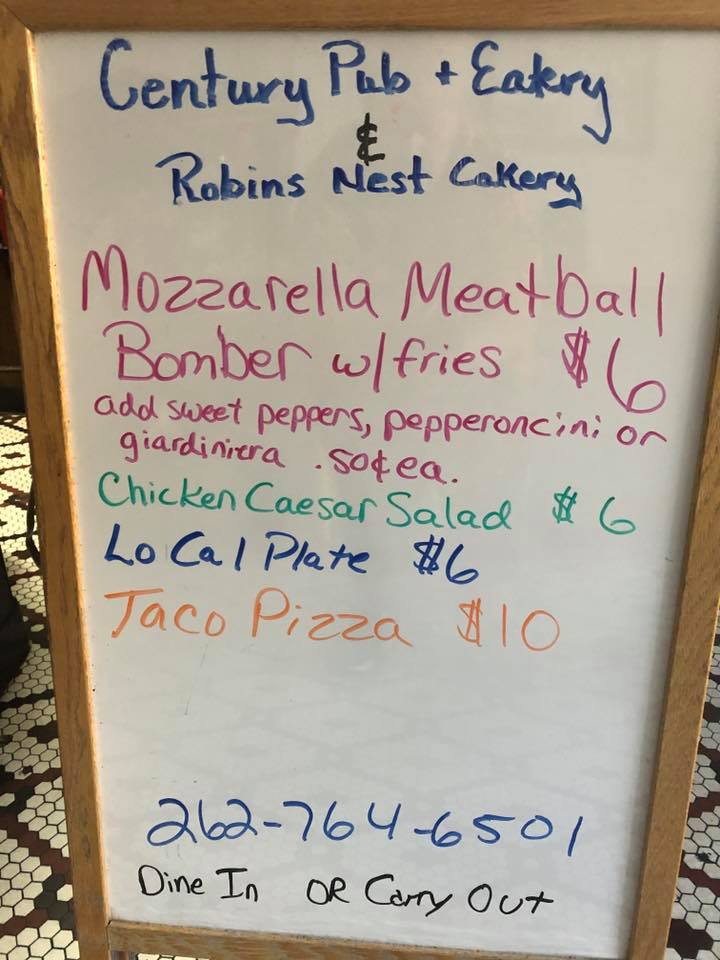 Century Pub + Eatery
&
Robins Nest Cakery
Mozzarella Meatball
Bomber w/fries $6
add sweet peppers, pepperoncini or
giardiniera .50¢ ea.
Chicken Caesar Salad $6
Lo Cal Plate $6
Taco Pizza $10
262-764-6501
Dine In OR Carry Out